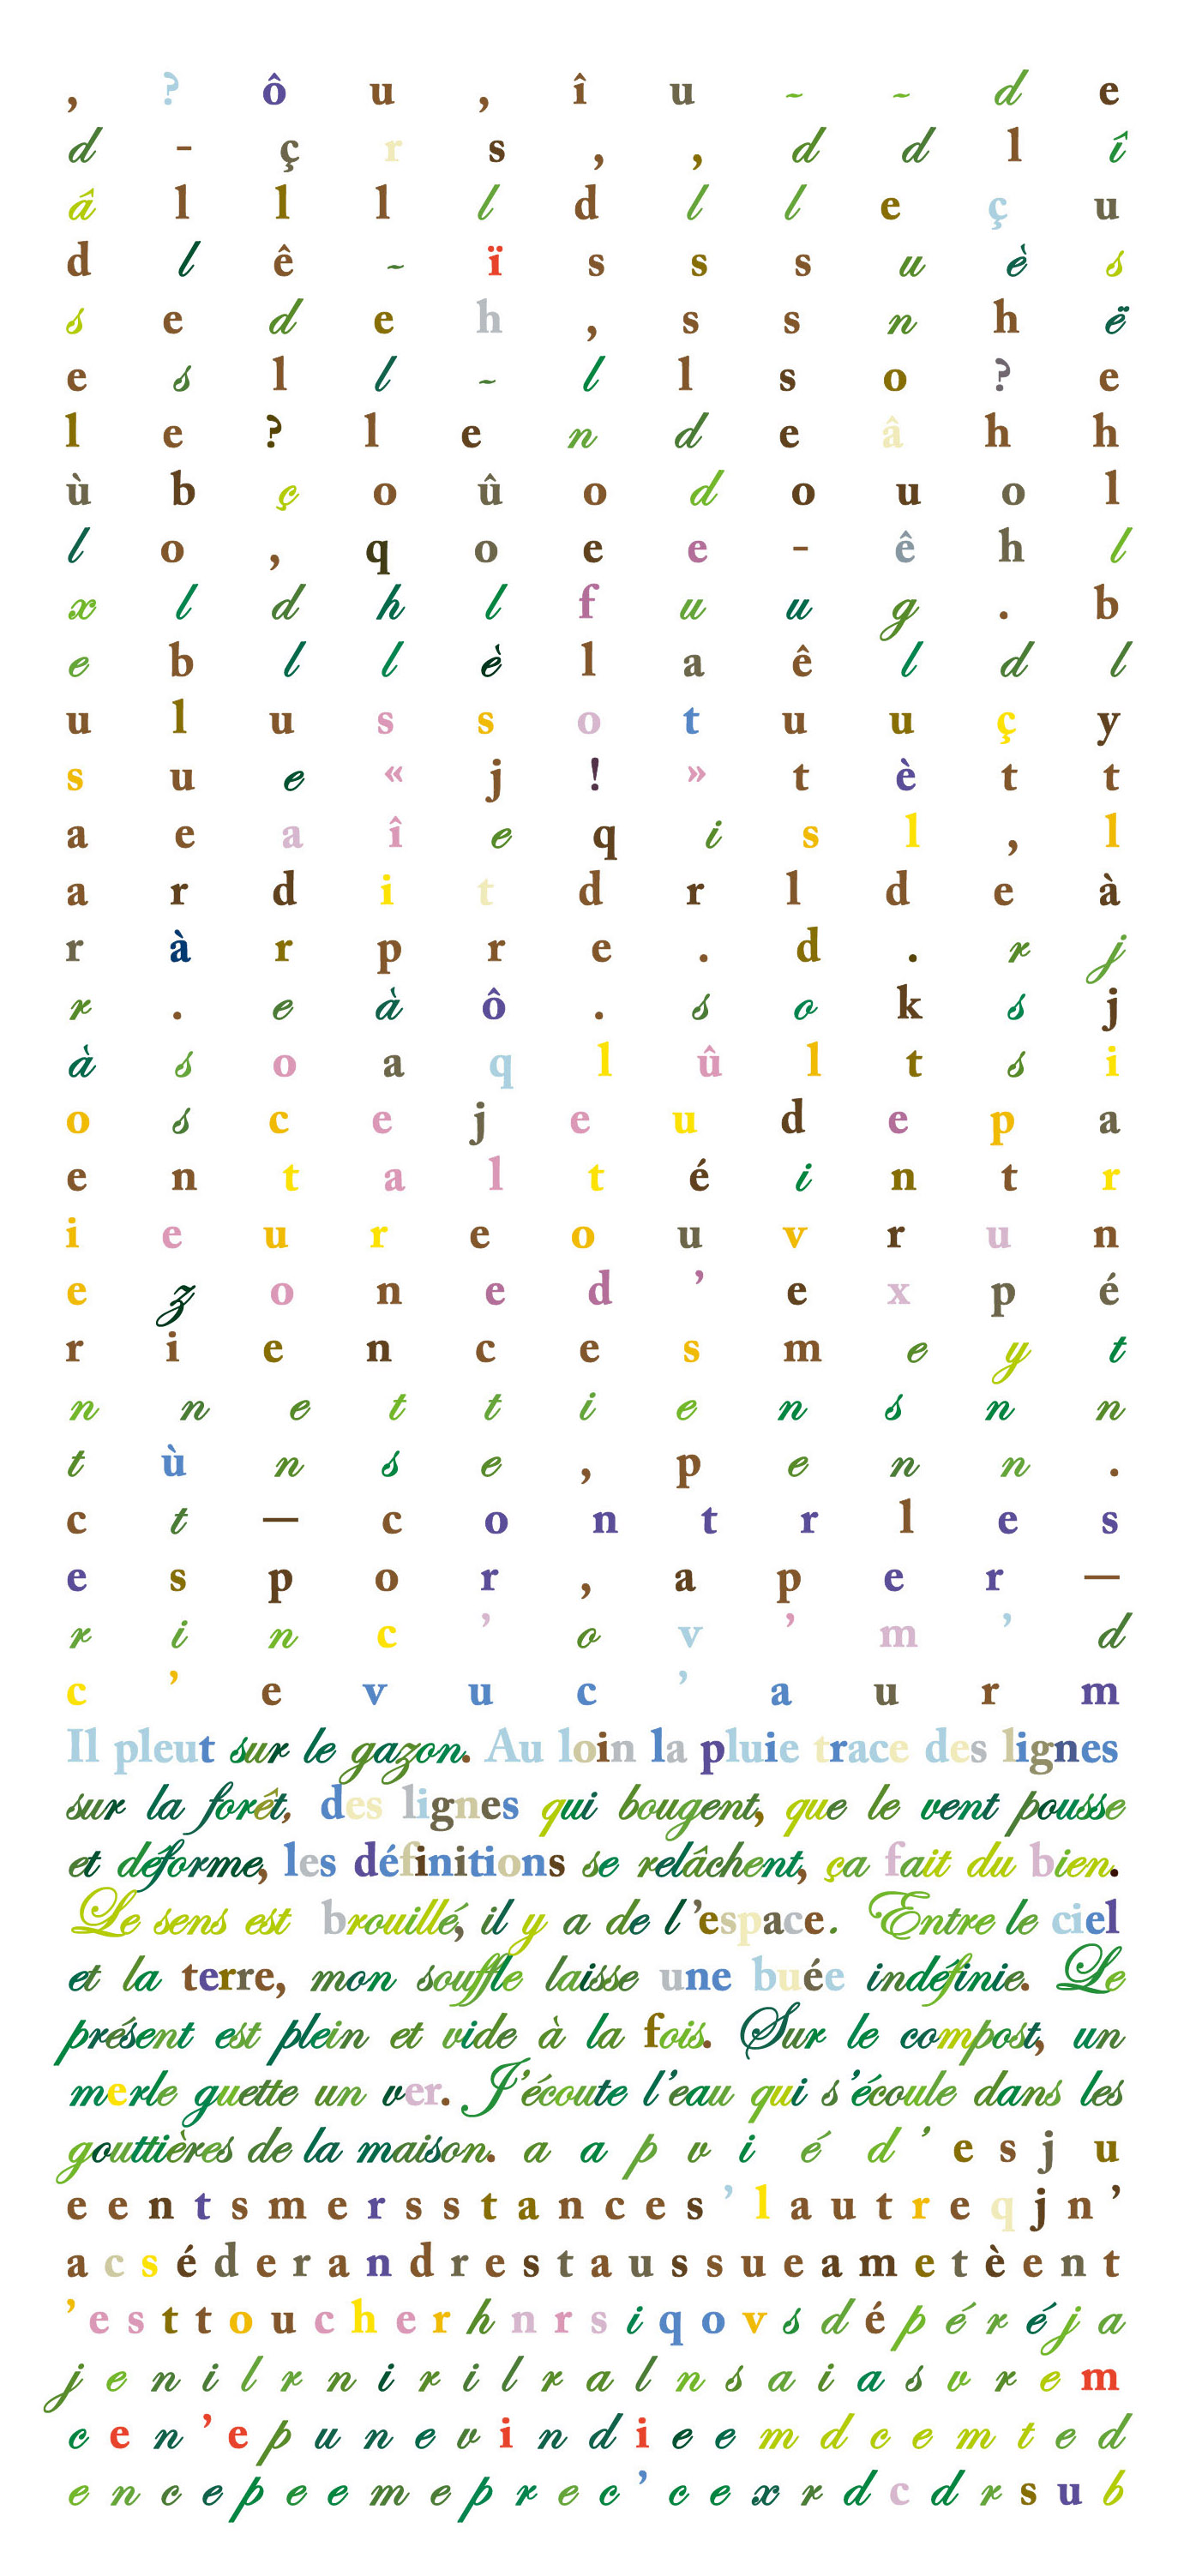 , ? ô u , î u - - d e
d - ç r s , , d d l î
â l l l l d l l e ç u
d l ê - ï s s s u è s
s e d e h , s s n h ë
e s l l - l l s o ? e
l e ? l e n d e â h h
ù b ç o û o d o u o l
l o , q o e e - ê h l
x l d h l f u u g . b
e b l l è l a ê l d l
u l u s s o t u u ç y
s u e « j ! » t è t t
a e a î e q i s l , l
a r d i t d r l d e à
r à r p r e . d . r j
r . e à ô . s o k s j
à s o a q l û l t s i
o s c e j e u d e p a
e n t a l t é i n t r
i e u r e o u v r u n
e z o n e d ’ e x p é
r i e n c e s m e y t
n n e t t i e n s n n
t ù n s e , p e n n .
c t — c o n t r l e s
e s p o r , a p e r —
r i n c ’ o v ’ m ’ d
c ’ e v u c ’ a u r m
Il pleut sur le gazon. Au loin la pluie trace des lignes
sur la forêt, des lignes qui bougent, que le vent pousse
et déforme, les définitions se relâchent, ça fait du bien.
Le sens est brouillé, il y a de l’espace. Entre le ciel
et la terre, mon souffle laisse une buée indéfinie. Le
présent est plein et vide à la fois. Sur le compost, un
merle guette un ver. J’écoute l’eau qui s’écoule dans les
gouttières de la maison. a a p v i é d ’ e s j u
e e n t s m e r s s t a n c e s ’ l a u t r e q j n ’
a c s é d e r a n d r e s t a u s s u e a m e t è e n t
’ e s t t o u c h e r h n r s i q o v s d é p é r é j a
j e n i l r n i r i l r a l n s a i a s v r e m
c e n ’ e p u n e v i n d i e e m d c e m t e d
e n c e p e e m e p r e c ’ c e x r d c d r s u b